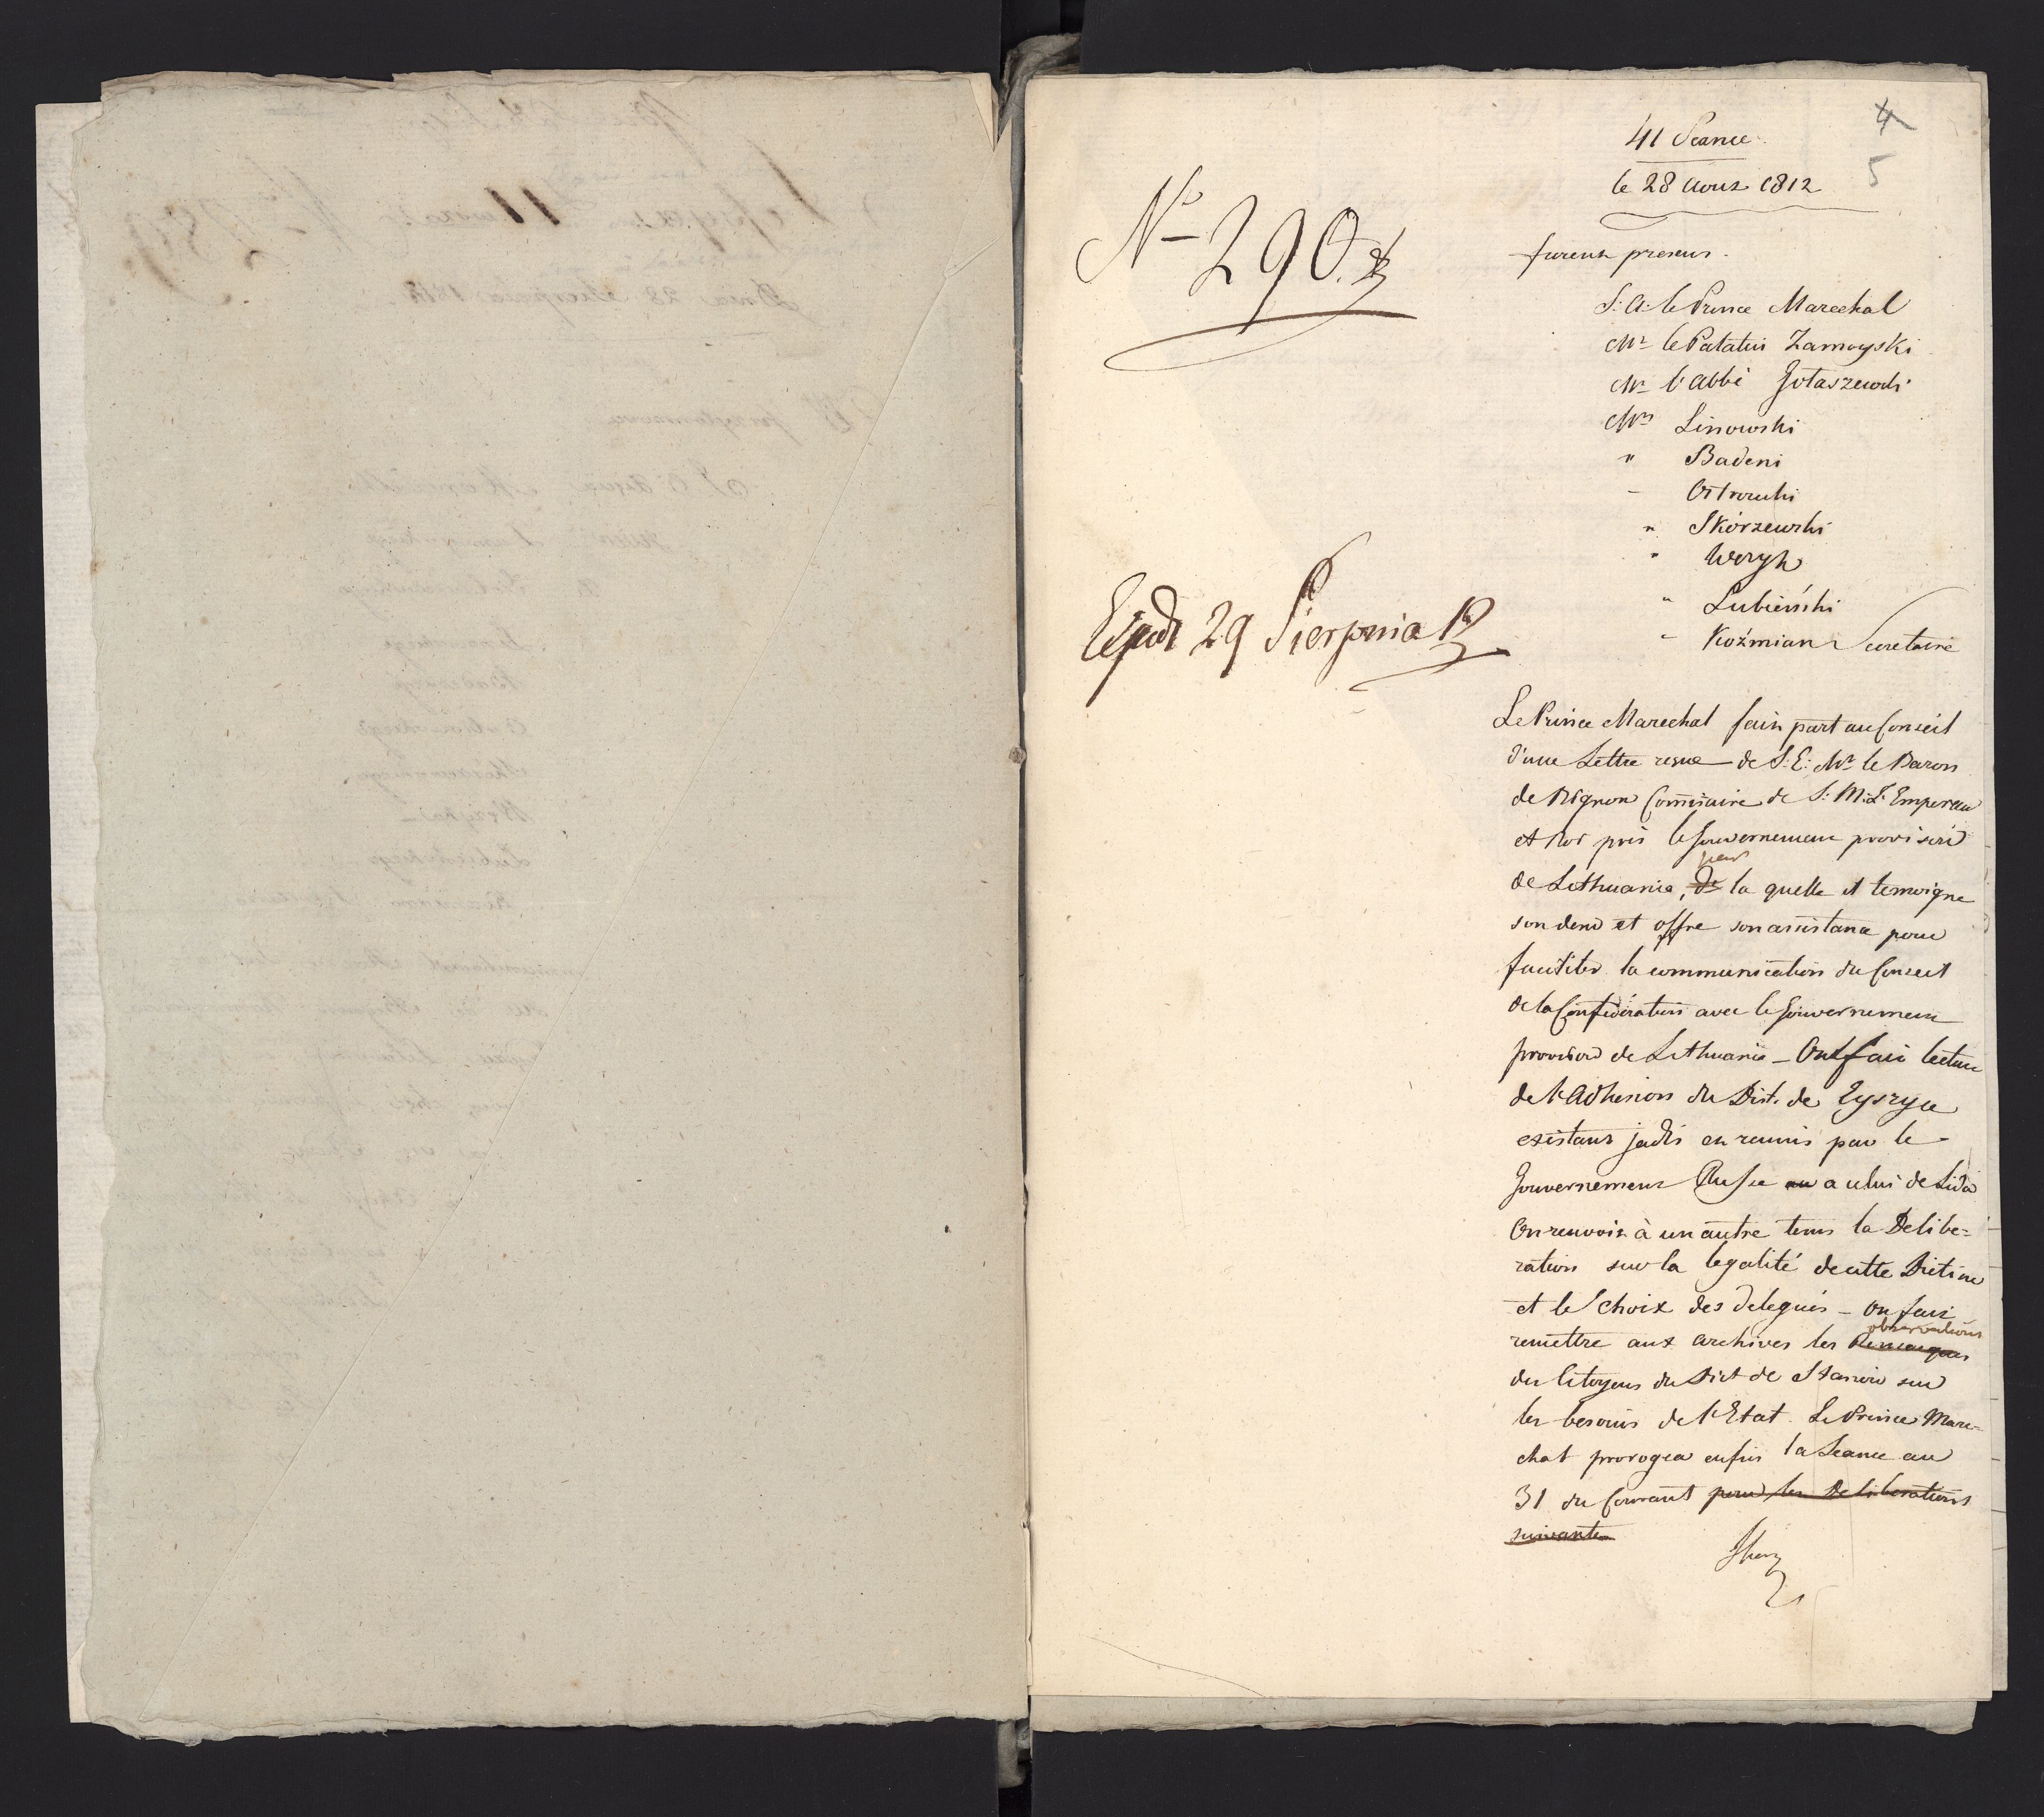 4
5
41 Seance
le 28 Aout 1812
No 290.
furent presens.
S: A: le Prince Marechal
Mr le Palatin Zamoyski
Mr l'Abbé Gołaszewski
Mrs Linowski
" Badeni
- Ostrowski
" Skórzewski
" Wężyk
" Lubieński
- Koźmian Secretaire
Expd 29 Sierpnia
Le Prince Marechal fait part au Conseil
d'une Lettre reçue de S: E: Mr le Baron
de Bignon Commissaire de S: M: L'Empereur
et Roi près le Gouvernement provisoire
de Lithuanie, de par la quelle il temoigne
son desir et offre son assistance pour
faciliter la communication du Conseil
de la Confédération avec le Gouvernement
provisoire de Lithuanie - On fait lecture
de l'Adhesion du Dist. de
existant jadis et reunis par le
Gouvernement Russe au a celui de Lida
On renvoit à un autre tems la Delibe=
ration sur la legalité de cette Dietine
et le choix des delegués - on fait
observations
remettre aux archives les Remarques
des Citoyens du Dist de Stanów sur
les besoins de l'Etat. Le Prince Mare=
chal prorogea enfin la Seance au
31 du Courant pour les Deliberations
suivantes